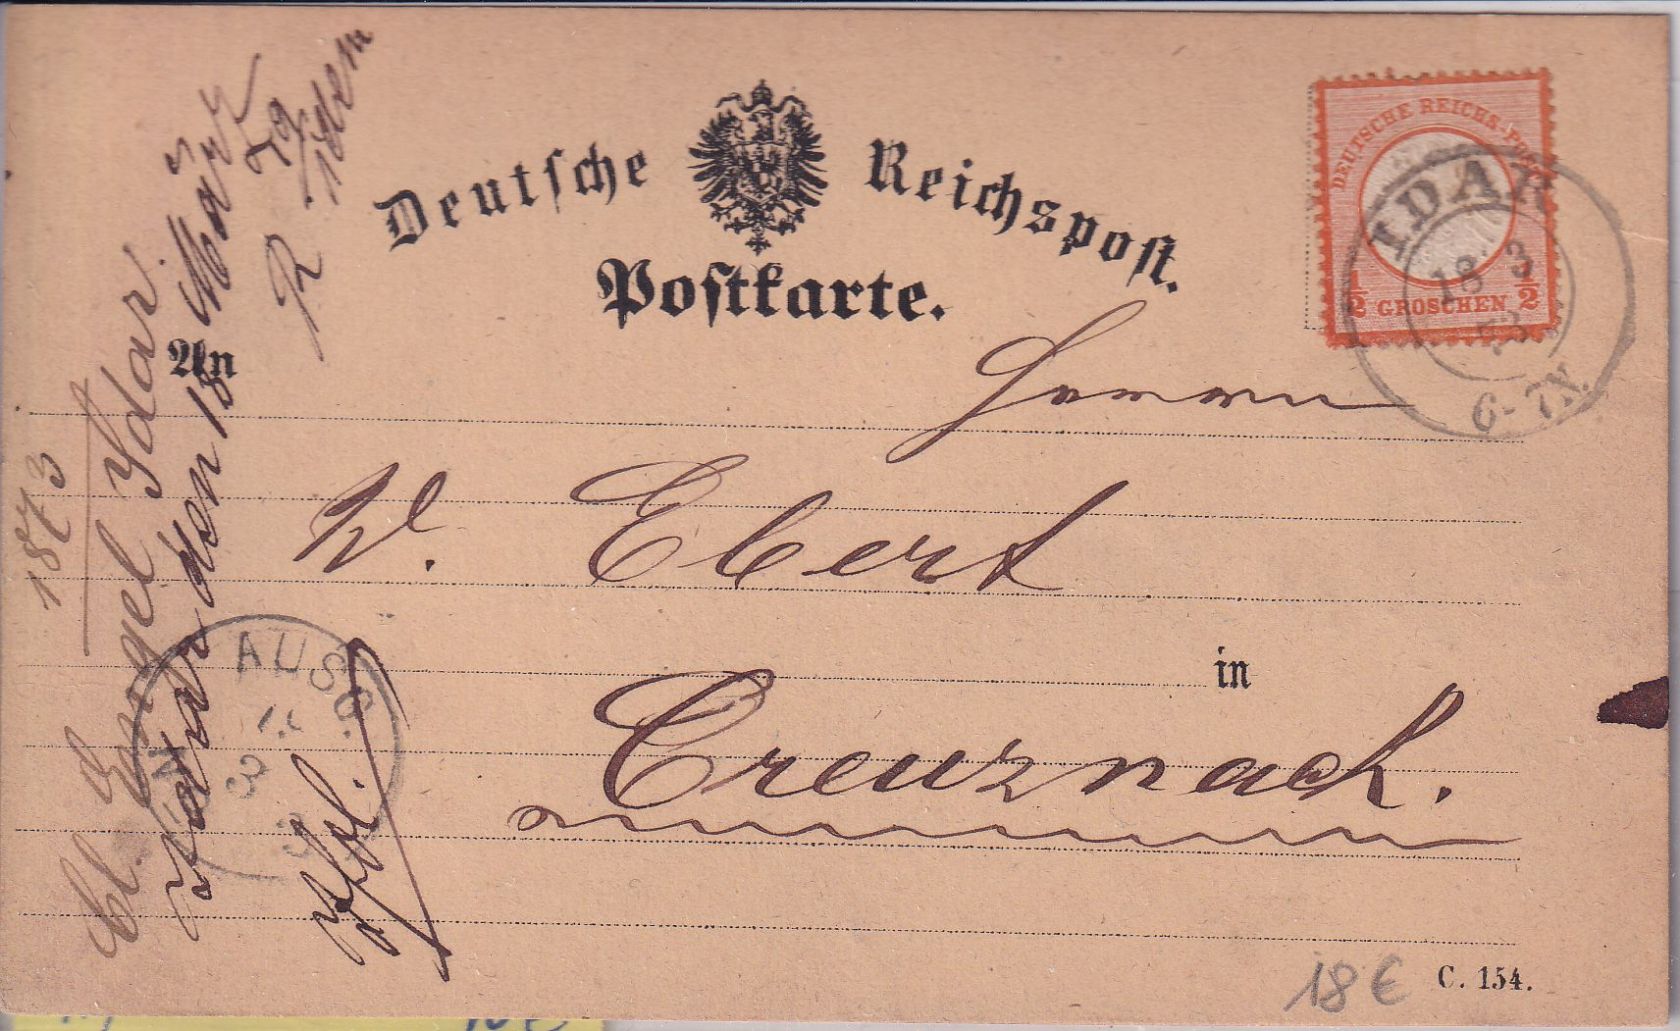 Deutsche Reichspost.
Postkarte.
DEUTSCHE REICHS-POST
½ GROSCHEN ½
IDAR
18 3
73
6-7N.
An
Herrn
W. Ebert
in
Creuznach.
C. 154.
18 €
1873
Engel Idar
Idar den 18 März
R
AUSG.
N